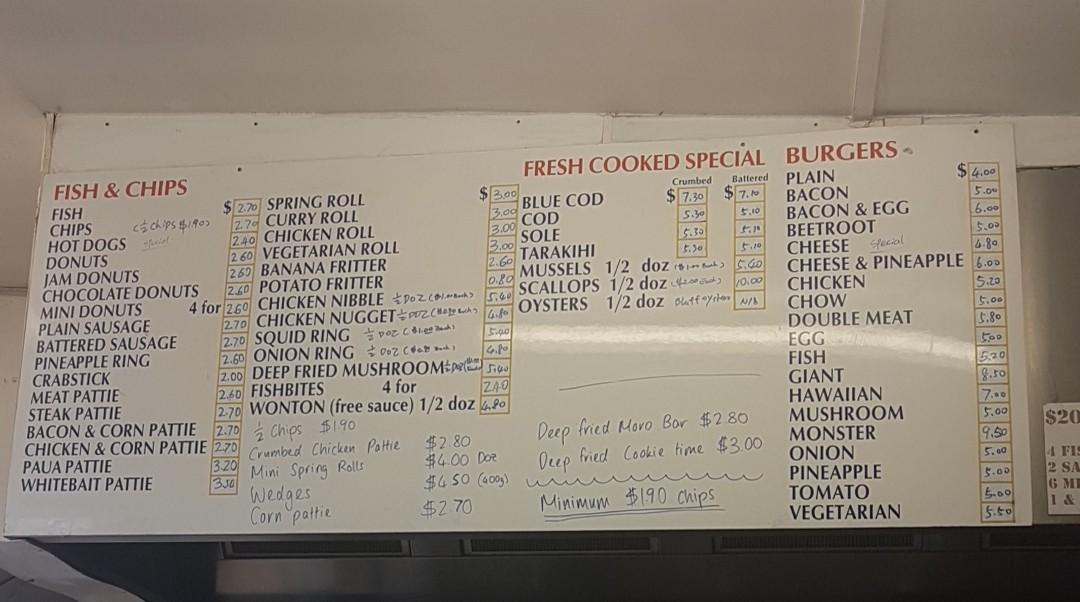 FISH & CHIPS
FISH $ 2.70
CHIPS (½ chips $1.90) 2.70
HOT DOGS special 2.40
DONUTS 2.60
JAM DONUTS 2.60
CHOCOLATE DONUTS 2.60
MINI DONUTS 4 for 2.60
PLAIN SAUSAGE 2.70
BATTERED SAUSAGE 2.70
PINEAPPLE RING 2.60
CRABSTICK 2.00
MEAT PATTIE 2.60
STEAK PATTIE 2.70
BACON & CORN PATTIE 2.70
CHICKEN & CORN PATTIE 2.70
PAUA PATTIE 3.20
WHITEBAIT PATTIE 3.50
SPRING ROLL $ 3.00
CURRY ROLL 3.00
CHICKEN ROLL 3.00
VEGETARIAN ROLL 3.00
BANANA FRITTER 2.60
POTATO FRITTER 0.80
CHICKEN NIBBLE ½ DOZ ($1.00 each) 5.40
CHICKEN NUGGET ½ DOZ 4.80
SQUID RING ½ DOZ ($1.00 each) 5.40
ONION RING ½ DOZ 4.80
DEEP FRIED MUSHROOM 5.40
FISHBITES 4 for 2.40
WONTON (free sauce) 1/2 doz 4.80
½ Chips $1.90
Crumbed Chicken Pattie $2.80
Mini Spring Rolls $4.00 Doz
Wedges $4.50 (400g)
Corn pattie $2.70
FRESH COOKED SPECIAL
Crumbed Battered
BLUE COD $ 7.30 $ 7.10
COD 5.30 5.10
SOLE 5.30 5.10
TARAKIHI 5.30 5.10
MUSSELS 1/2 doz 5.40
SCALLOPS 1/2 doz 10.00
OYSTERS 1/2 doz Bluff oyster N/A
Deep fried Moro Bar $2.80
Deep fried Cookie time $3.00
Minimum $1.90 chips
BURGERS
PLAIN $ 4.00
BACON 5.00
BACON & EGG 6.00
BEETROOT 5.00
CHEESE special 4.80
CHEESE & PINEAPPLE 6.00
CHICKEN 5.20
CHOW 5.00
DOUBLE MEAT 5.80
EGG 5.00
FISH 5.20
GIANT 8.50
HAWAIIAN 7.00
MUSHROOM 5.00
MONSTER 9.50
ONION 5.00
PINEAPPLE 5.00
TOMATO 5.00
VEGETARIAN 5.50
$20
4 FIS
2 SA
6 MI
1 &